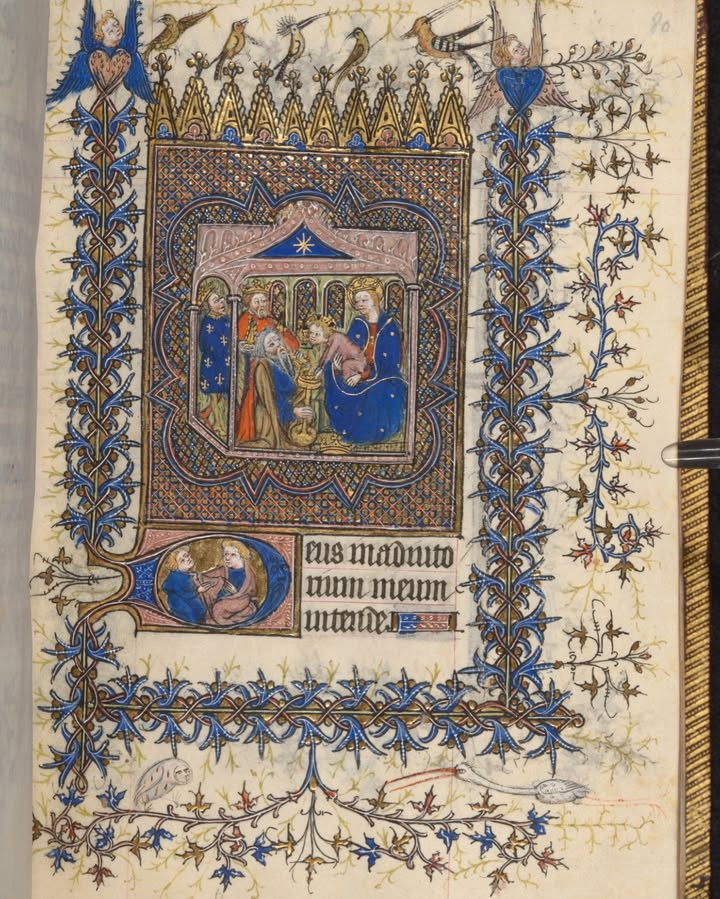 80
Deus in adiuto
rium meum
intende.